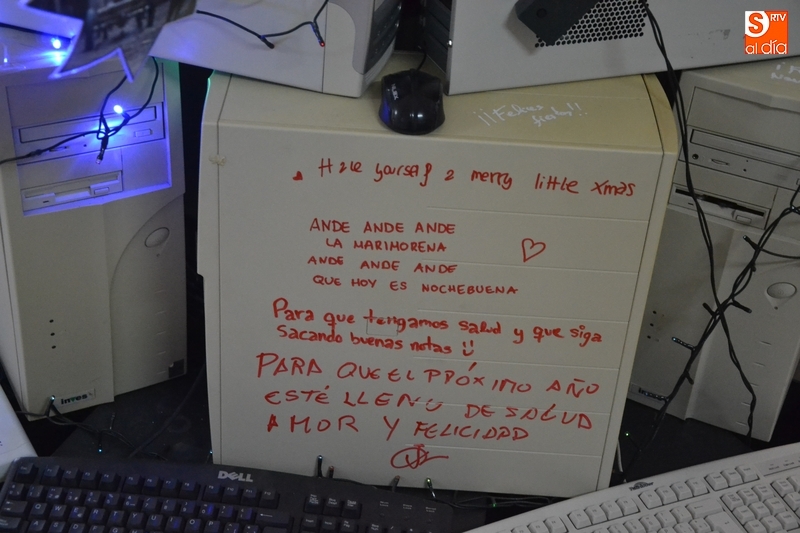 S RTV
al día
¡¡Felices fiestas!!
Have yourself a merry little xmas
ANDE ANDE ANDE
LA MARIMORENA
ANDE ANDE ANDE
QUE HOY ES NOCHEBUENA
Para que tengamos salud y que siga
Sacando buenas notas
PARA QUE EL PRÓXIMO AÑO
ESTÉ LLENO DE SALUD
AMOR Y FELICIDAD
inves
DELL